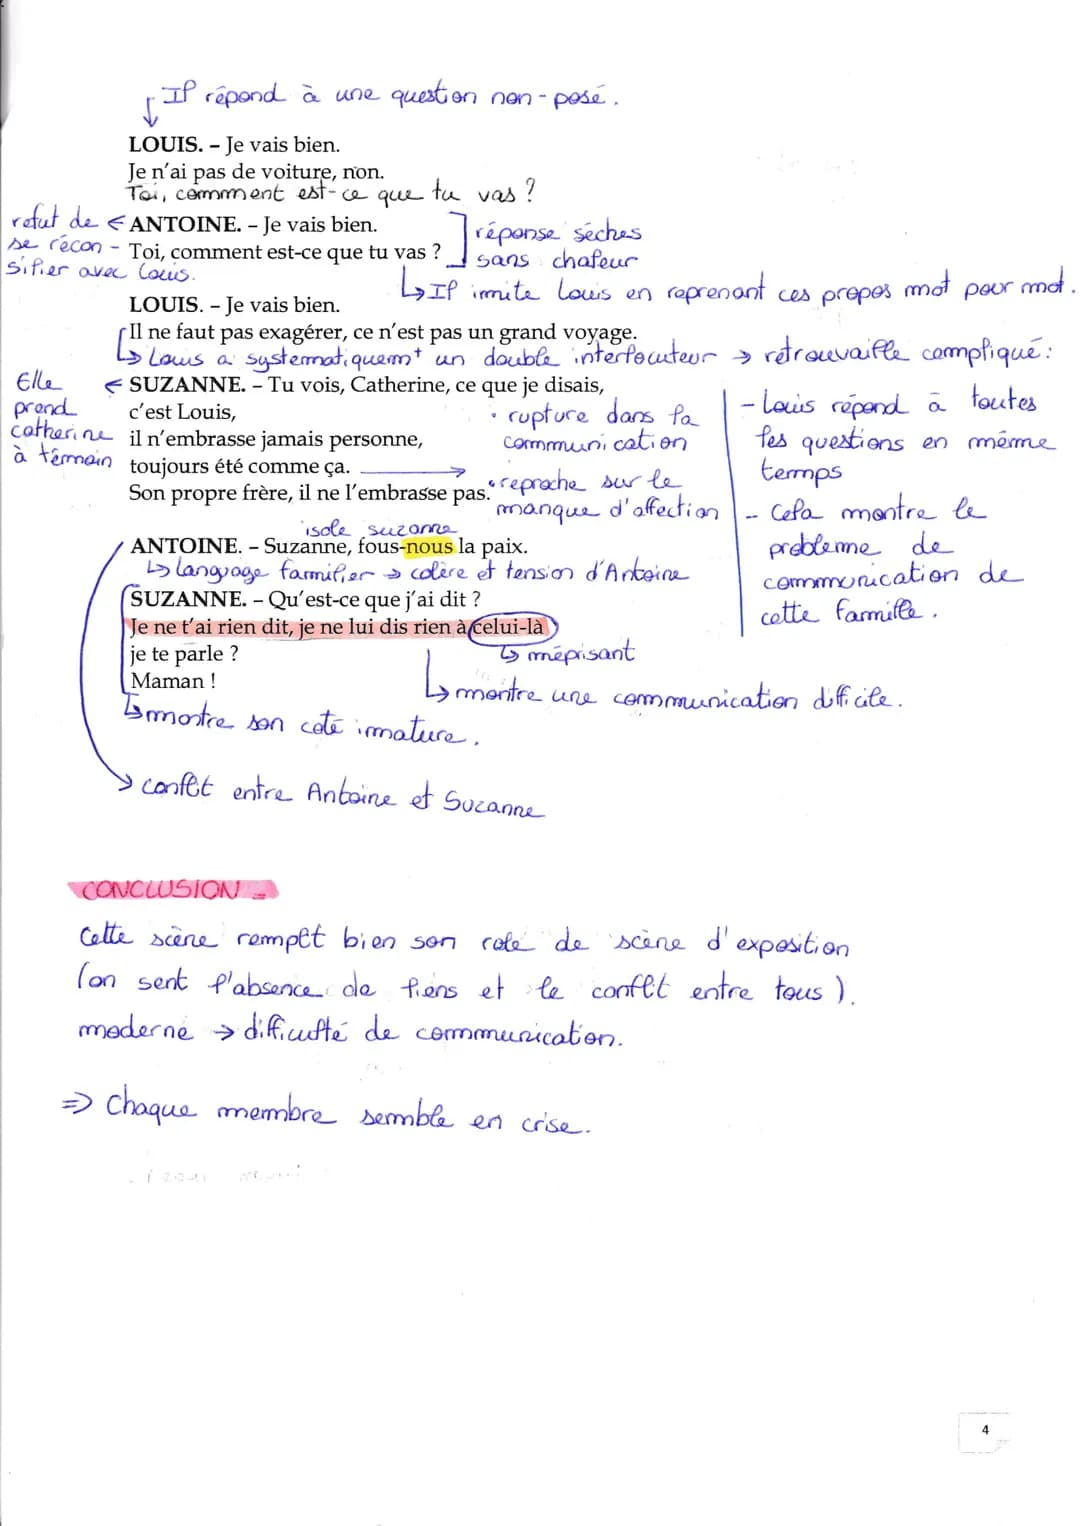 Il répond à une question non-posé.
LOUIS. – Je vais bien.
Je n'ai pas de voiture, non.
Toi, comment est-ce que tu vas ?
refut de
se récon-
silier avec Louis.
ANTOINE. – Je vais bien.
Toi, comment est-ce que tu vas ?
réponse sèches
sans chaleur
Il imite Louis en reprenant ces propos mot pour mot.
LOUIS. – Je vais bien.
Il ne faut pas exagérer, ce n'est pas un grand voyage.
Louis a systematiquemt un double interlocuteur → retrouvaille compliqué :
Elle
prend
catherine
à témoin
SUZANNE. – Tu vois, Catherine, ce que je disais,
c'est Louis,
il n'embrasse jamais personne,
toujours été comme ça.
Son propre frère, il ne l'embrasse pas.
• rupture dans la
communication
• reproche sur le
manque d'affection
- Louis répond à toutes
les questions en même
temps
- Cela montre le
problème de
communication de
cette famille.
isole suzanne
ANTOINE. – Suzanne, fous-nous la paix.
language familier → colère et tension d'Antoine
SUZANNE. – Qu'est-ce que j'ai dit ?
Je ne t'ai rien dit, je ne lui dis rien à celui-là
je te parle ?
Maman !
méprisant
montre une communication difficile.
montre son coté immature.
conflit entre Antoine et Suzanne
CONCLUSION
Cette scène remplit bien son role de scène d'exposition
(on sent l'absence de liens et le conflit entre tous).
moderne → difficulté de communication.
⇒ Chaque membre semble en crise.
4